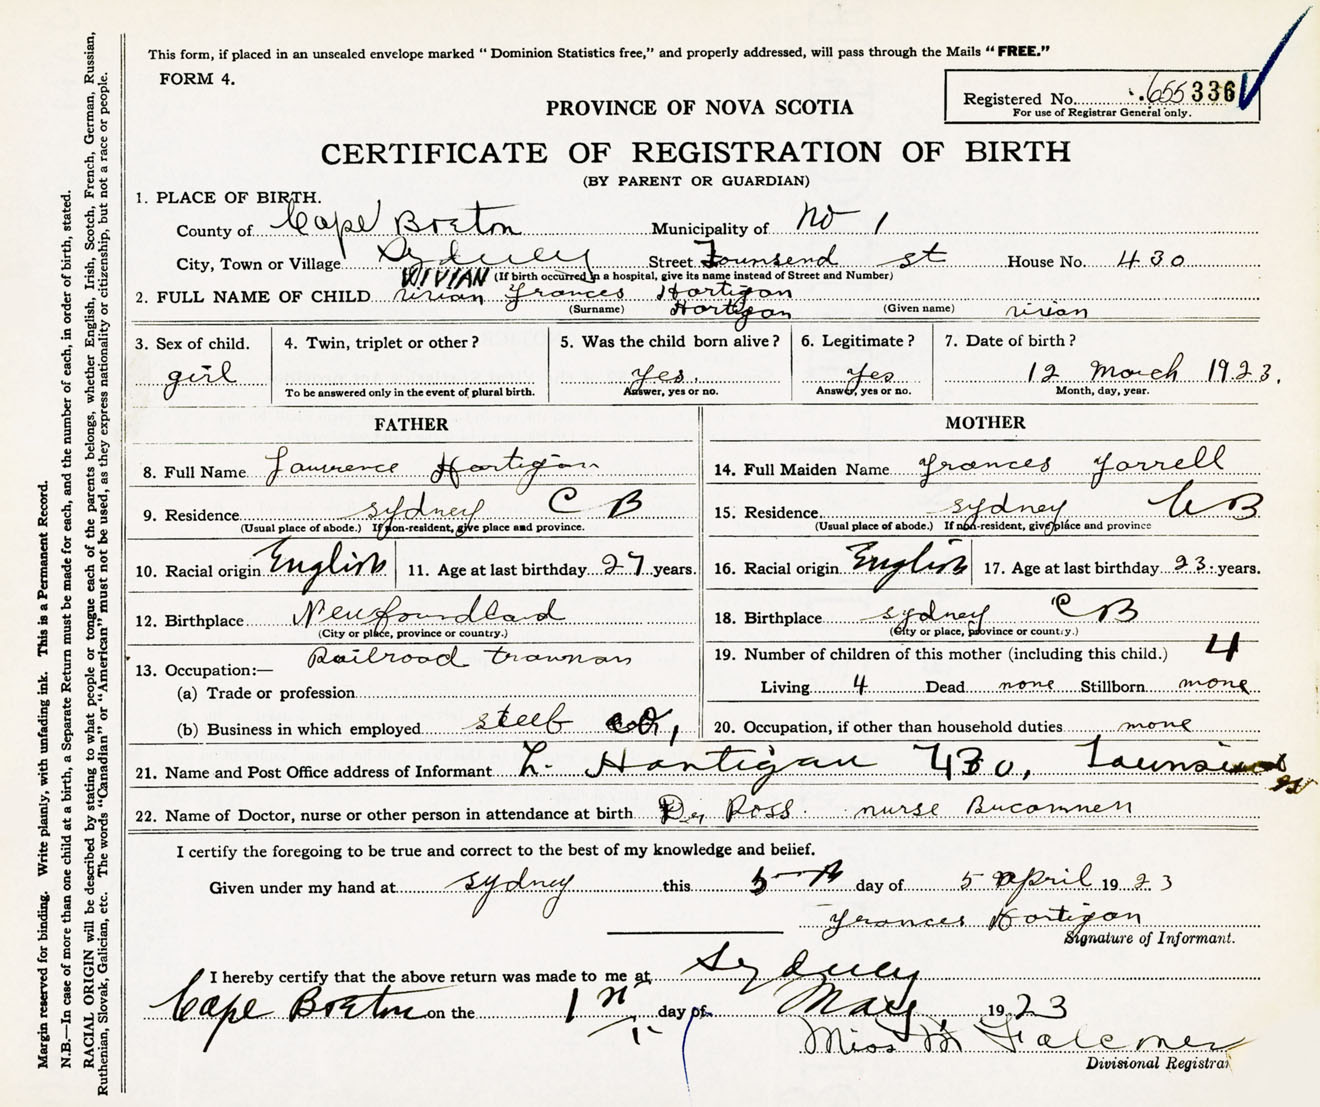 This form, if placed in an unsealed envelope marked “ Dominion Statistics free,” and properly addressed, will pass through the Mails “ FREE.”
FORM 4.
Registered No. 655336
For use of Registrar General only.
PROVINCE OF NOVA SCOTIA
CERTIFICATE OF REGISTRATION OF BIRTH
(BY PARENT OR GUARDIAN)
1. PLACE OF BIRTH.
County of Cape Breton Municipality of No 1
City, Town or Village Sydney Street Townsend st House No. 430
VIVIAN (If birth occurred in a hospital, give its name instead of Street and Number)
2. FULL NAME OF CHILD vivian Frances Hartigan
(Surname) Hartigan (Given name) vivian
3. Sex of child. 4. Twin, triplet or other? 5. Was the child born alive? 6. Legitimate? 7. Date of birth?
girl yes. yes 12 March 1923.
To be answered only in the event of plural birth. Answer, yes or no. Answer, yes or no. Month, day, year.
FATHER MOTHER
8. Full Name Lawrence Hartigan 14. Full Maiden Name Frances Farrell
9. Residence sydney C B 15. Residence sydney C B
(Usual place of abode.) If non-resident, give place and province. (Usual place of abode.) If non-resident, give place and province
10. Racial origin English 11. Age at last birthday 27 years. 16. Racial origin English 17. Age at last birthday 23 years.
12. Birthplace Newfoundland 18. Birthplace sydney C B
(City or place, province or country.) (City or place, province or country.)
13. Occupation:— Railroad 19. Number of children of this mother (including this child.) 4
(a) Trade or profession Living 4 Dead none Stillborn none
(b) Business in which employed steel co, 20. Occupation, if other than household duties none
21. Name and Post Office address of Informant L. Hartigan 430, st
22. Name of Doctor, nurse or other person in attendance at birth Dr Ross nurse
I certify the foregoing to be true and correct to the best of my knowledge and belief.
Given under my hand at sydney this 5th day of 5 april 1923
Frances Hartigan
Signature of Informant.
I hereby certify that the above return was made to me at Sydney
Cape Breton on the 1 day of May 1923
Miss M Falconer
Divisional Registrar
Margin reserved for binding. Write plainly, with unfading ink. This is a Permanent Record.
N.B.—In case of more than one child at a birth, a Separate Return must be made for each, and the number of each, in order of birth, stated.
RACIAL ORIGIN will be described by stating to what people or tongue each of the parents belongs, whether English, Irish, Scotch, French, German, Russian,
Ruthenian, Slovak, Galician, etc. The words “Canadian” or “American” must not be used, as they express nationality or citizenship, but not a race or people.